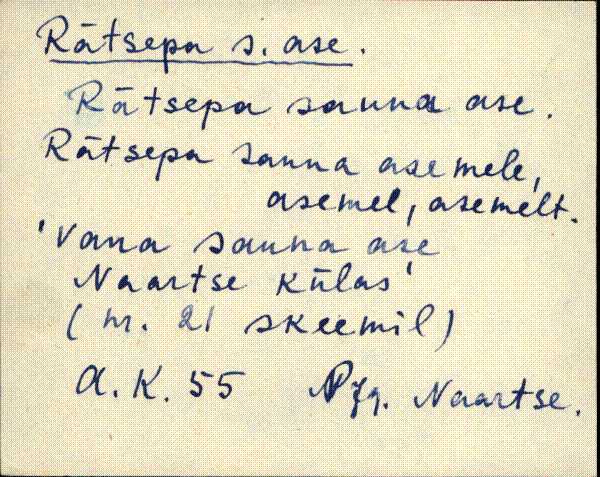 Rätsepa s. ase.
Rätsepa sauna ase.
Rätsepa sauna asemele,
asemel, asemelt.
'Vana sauna ase
Naartse külas'
(nr. 21 skeemil)
A.K. 55 Naartse.